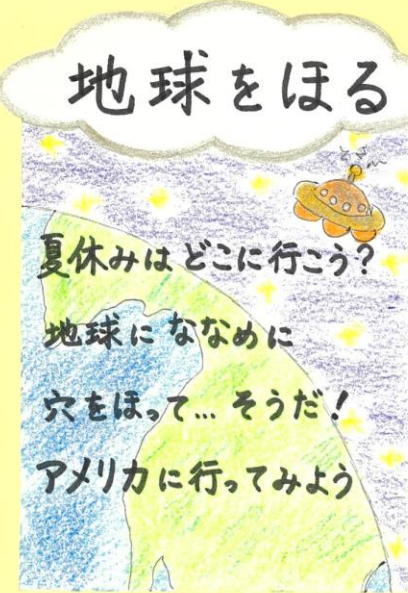 地球をほる
夏休みはどこに行こう?
地球にななめに
穴をほって…そうだ!
アメリカに行ってみよう